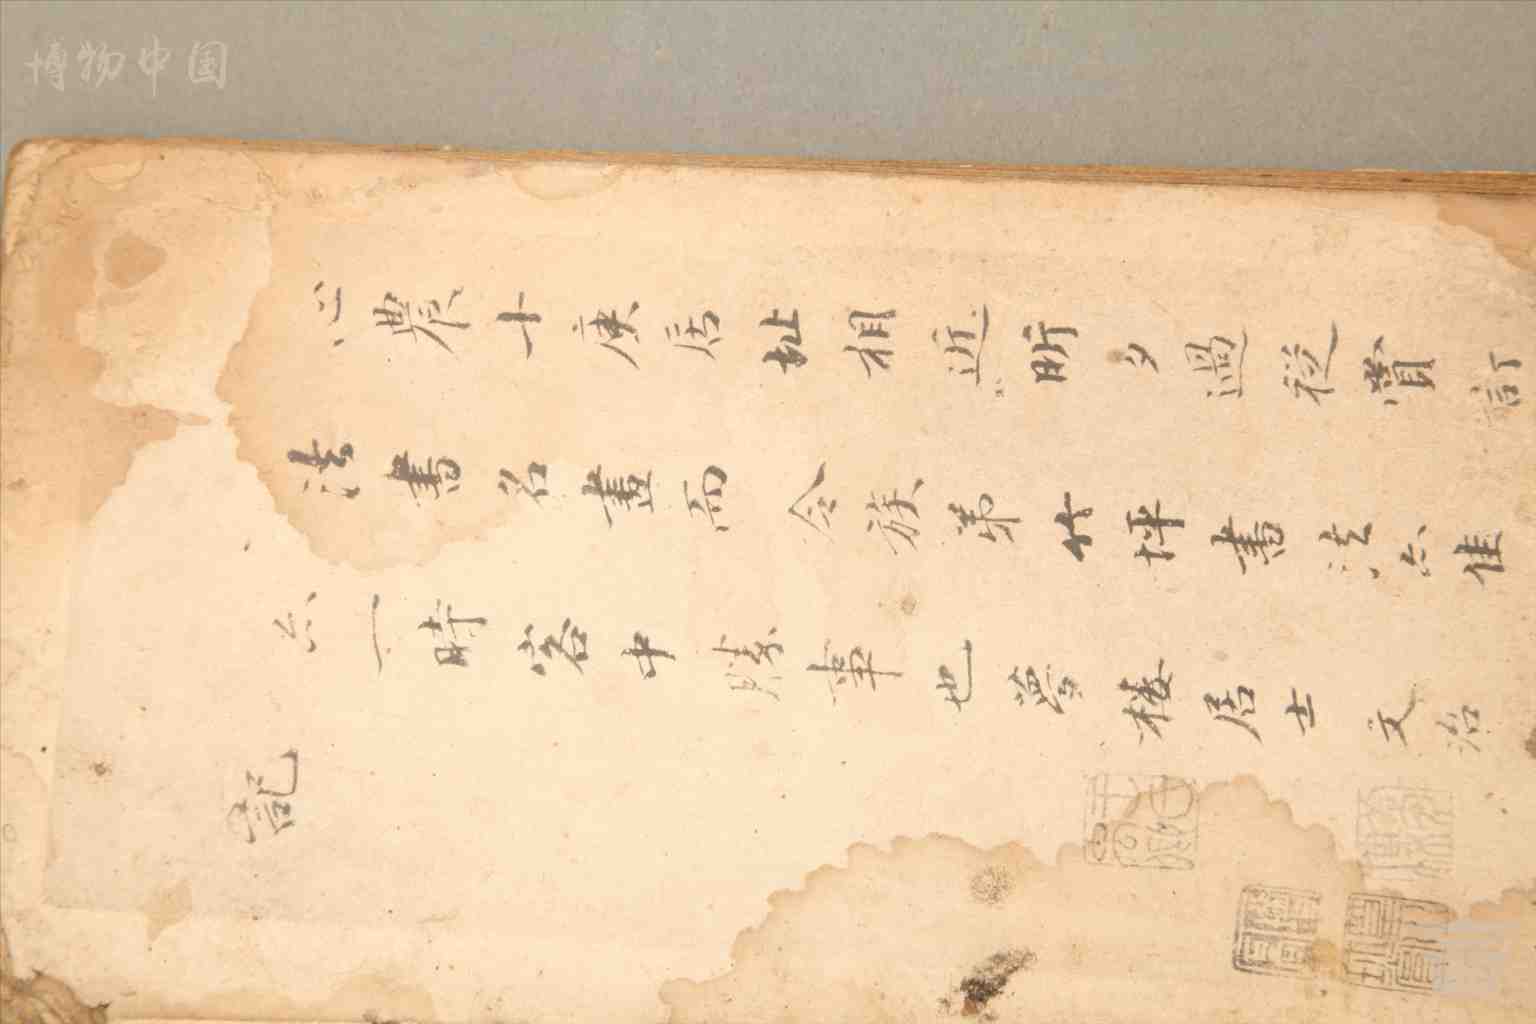 博物中国
心農十庚居址相近昕夕過從賞訂
法書名畫而令族弟竹坪書法亦佳
亦一時客中勝事也夢樓居士文治
記